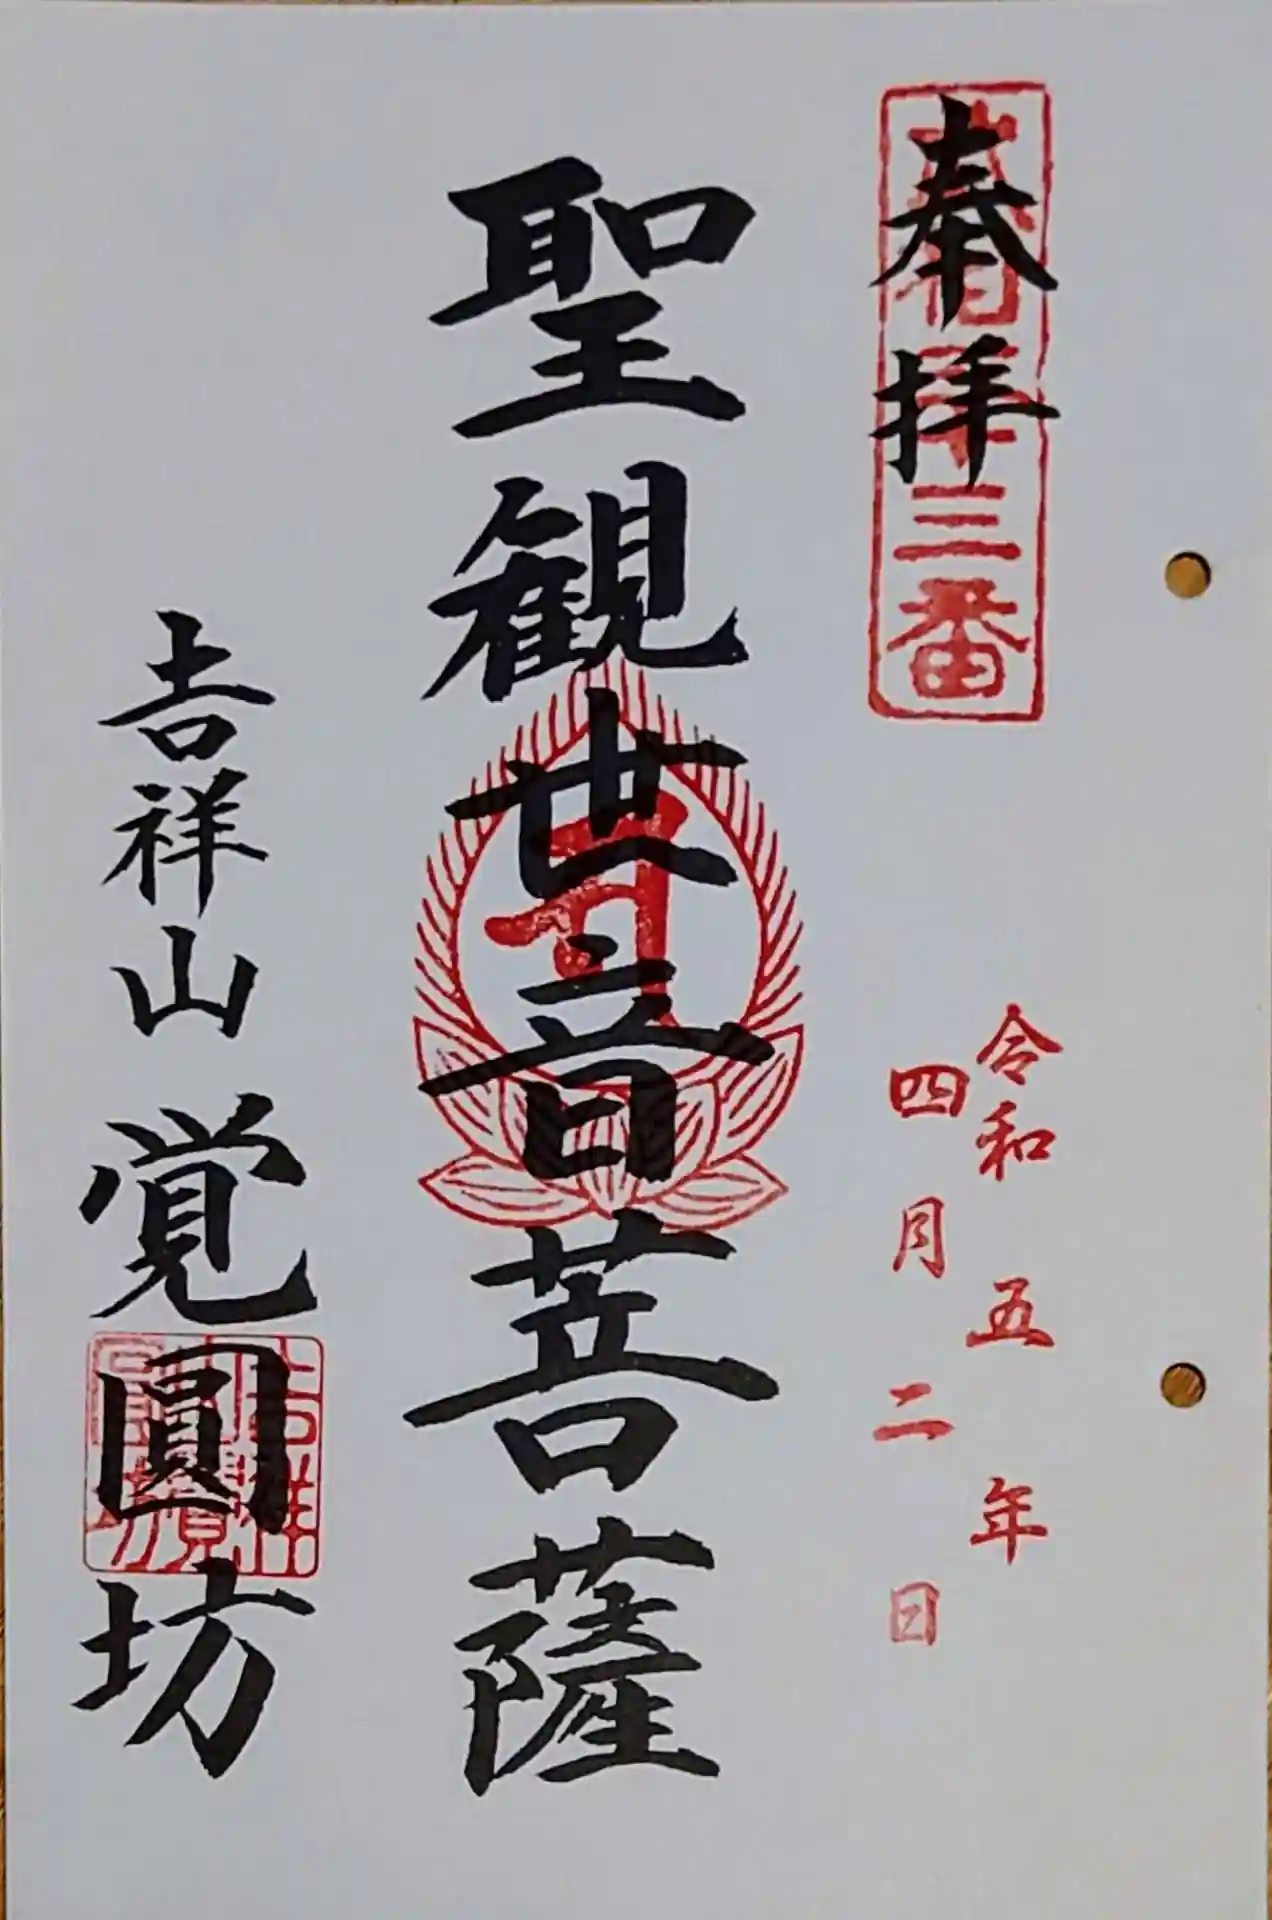 奉拝
三番
令和五年
四月二日
聖観世音菩薩
吉祥山覚圓坊